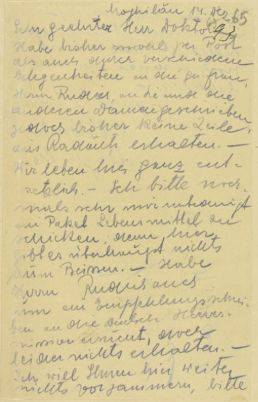 Moghilău 14. Dez. 65
Sehr geehrter Herr Doktor!
Habe bisher sowohl per Post
als auch durch verschiedene
Gelegenheiten an die
Herrn Rudich an die und die
anderen Damen geschrieben,
jedoch bisher keine Zeile
aus Radautz erhalten. —
Wir leben hier ganz ent-
setzlich. — Ich bitte noch-
mals sehr
ein Paket Lebensmittel zu
schicken, denn hier
gibt es überhaupt nichts
zum Beissen. — Habe
Herrn Rudich auch
um ein Empfehlungsschrei-
ben an die deutsche
ersucht, doch
leider nichts erhalten. —
Ich will Ihnen hier weiter
nichts vorjammern, bitte